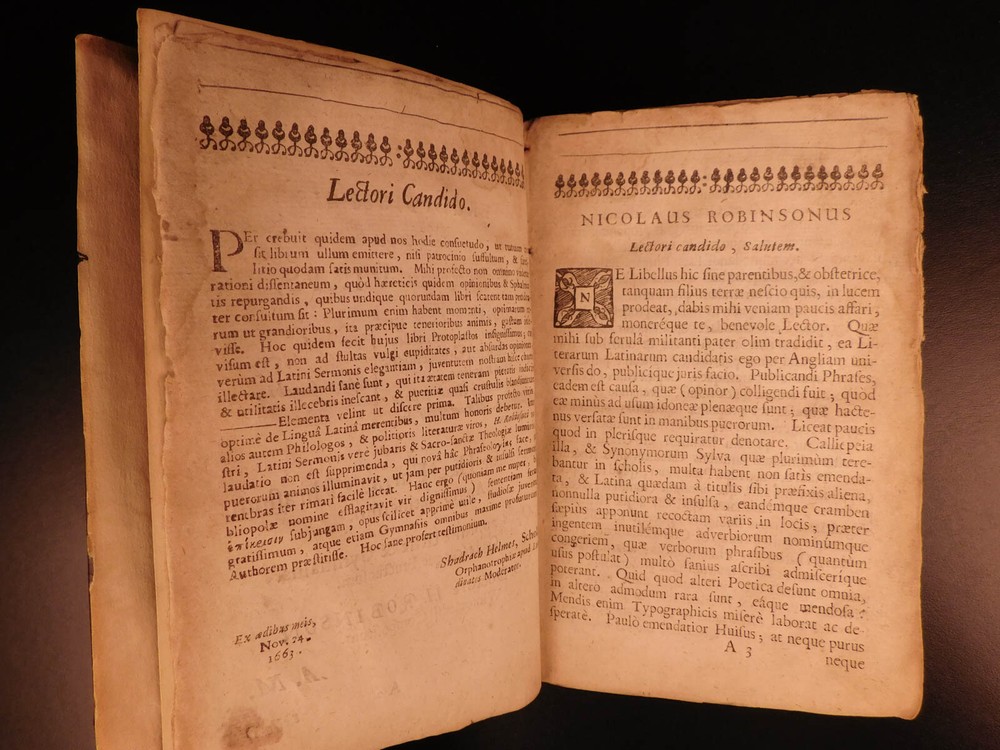 Lectori Candido.
PEr crebuit quidem apud nos hodie consuetudo, ut
sit librum ullum emittere, nisi patrocinio suffultum, &
litio quodam satis munitum. Mihi profecto non omnino
rationi dissentaneum, quòd hæreticis quidem opinionibus &
tis repurgandis, quibus undique quorundam libri scatent
ter consultum sit: Plurimum enim habent momenti,
rum ut grandioribus, ita præcipue tenerioribus animis,
visse. Hoc quidem fecit hujus libri Protoplastes
visum est, non ad stultas vulgi cupiditates, aut absurdas opiniones
verùm ad Latini Sermonis elegantiam, juventutem nostram
illectare. Laudandi sanè sunt, qui ita ætatem teneram pietatis
& utilitatis illecebris inescant, & pueritiæ quasi crustulis
Elementa velint ut discere prima. Talibus profecto
optimè de Linguâ Latinâ merentibus, multum honoris debetur.
alios autem Philologos, & politioris literaturæ viros,
stri, Latini Sermonis verè jubaris & Sacro-sanctæ Theologiæ
laudatio non est supprimenda, qui novâ hâc Phraseologiæ face,
puerorum animos illuminavit, ut jam per putidioris & insulsi sermonis
tenebras iter rimari facilè liceat. Hanc ergo (quoniam me nuper,
bibliopolæ nomine efflagitavit vir dignissimus)
ἐπίκρισιν subjungam, opus scilicet apprimè utile, studiosæ
gratissimum, atque etiam Gymnasiis omnibus maximè
Authorem præstitisse. Hoc sane profert testimonium.
Shadrach Helmes,
Orphanotrophiæ apud
Moderator.
Ex ædibus meis,
Nov. 24.
1663.
NICOLAUS ROBINSONUS
Lectori candido, Salutem.
NE Libellus hic sine parentibus, & obstetrice,
tanquam filius terræ nescio quis, in lucem
prodeat, dabis mihi veniam paucis affari,
moneréque te, benevole Lector. Quæ
mihi sub ferulâ militanti pater olim tradidit, ea Li-
terarum Latinarum candidatis ego per Angliam uni-
versis do, publicique juris facio. Publicandi Phrases,
eadem est causa, quæ (opinor) colligendi fuit; quod
eæ minùs ad usum idoneæ plenæque sunt; quæ hacte-
nus versatæ sunt in manibus puerorum. Liceat paucis
quod in plerisque requiratur denotare. Callipeia
illa, & Synonymorum Sylva quæ plurimùm tere-
bantur in scholis, multa habent non satis emenda-
ta, & Latina quædam à titulis sibi præfixis aliena,
nonnulla putidiora & insulsa, eandémque cramben
sæpius apponunt recoctam variis in locis; præter
ingentem inutilémque adverbiorum nominumque
congeriem, quæ verborum phrasibus (quantùm
usus postulat) multò sanius ascribi admiscerique
poterant. Quid quod alteri Poetica desunt omnia,
in altero admodum rara sunt, eáque mendosa:
Mendis enim Typographicis miserè laborat ac de-
speratè. Paulò emendatior Huisus; at neque purus
A 3
neque